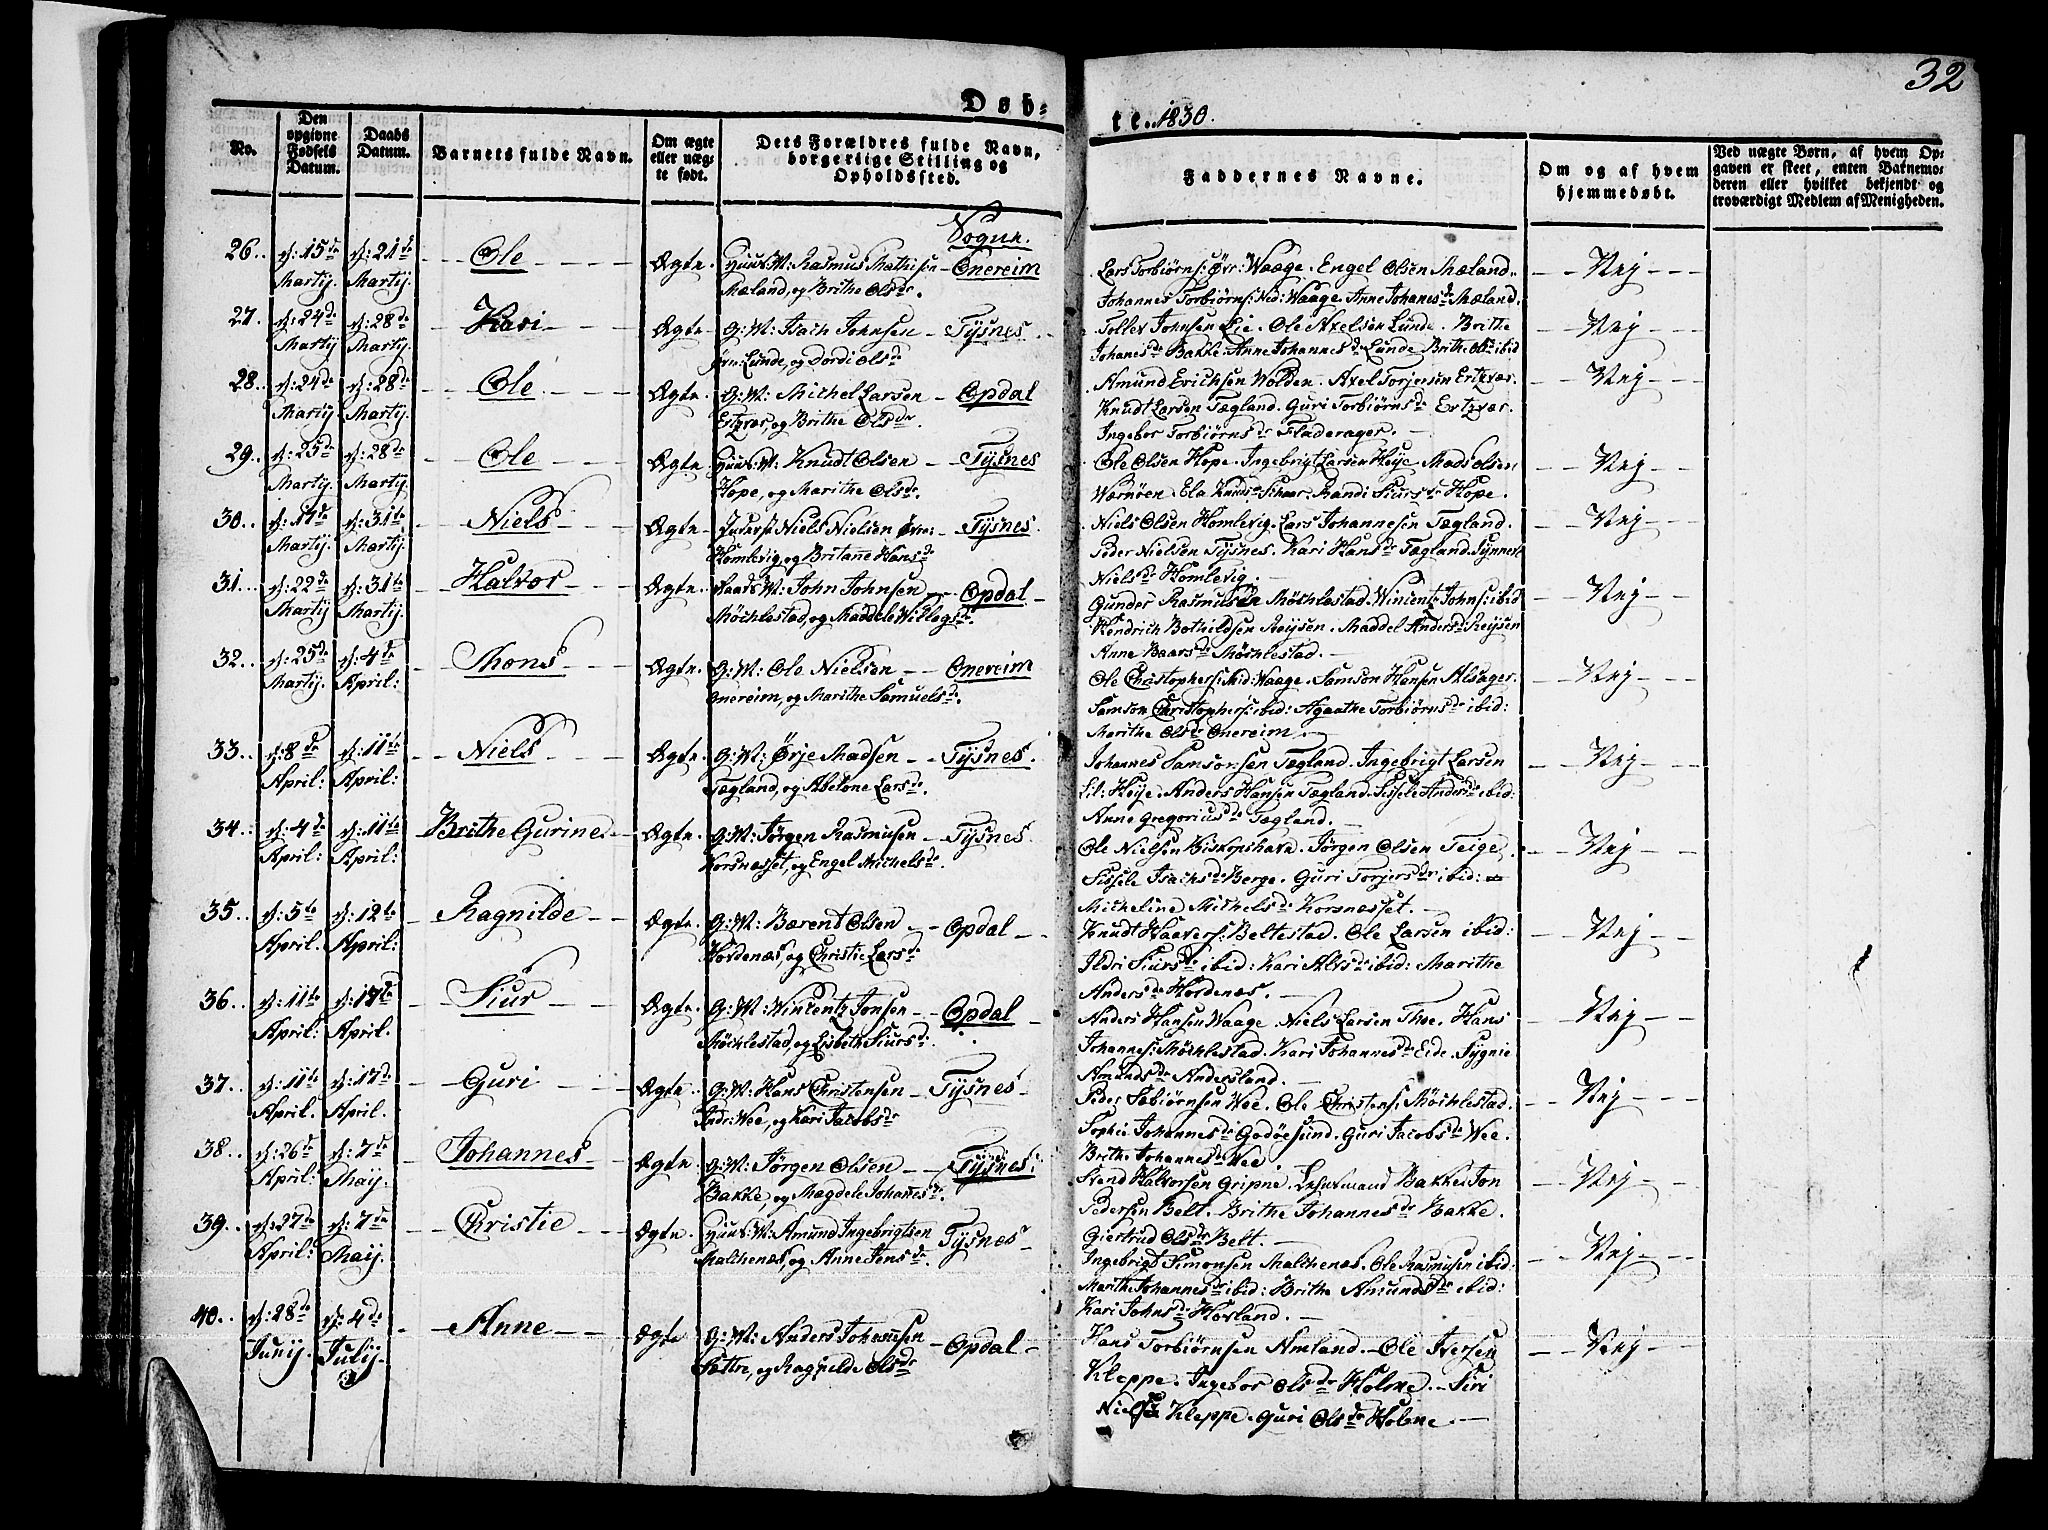 32
Døb-
te. 1830.
No.
Den opgivne Fødsels Datum.
Daabs Datum.
Barnets fulde Navn.
Om ægte eller uægte født.
Dets Forældres fulde Navn, borgerlige Stilling og Opholdssted.
Faddernes Navne.
Om og af hvem hjemmedøbt.
Ved uægte Børn, af hvem Opgaven er skeet, enten Barnemoderen eller hvilket bekjendt og troværdigt Medlem af Menigheden.
Sogne.
26. d: 15de Martij. d: 21de Martij. Ole Ægte. Huus M: Rasmus Mathisen Onereim
Mæland, og Brithe Olsdr.
Lars Torbiørns: Øvr: Waage. Engel Olsen Mæland.
Johannes Torbiørns: Ned: Waage. Anne Johanesdr Mæland.
Nej
27. d: 24de Martij d: 28de Martij. Kari Ægte G: M: Isach Johnsen Tysnes.
Lunde, og Dordi Olsdr
Tollev Johnsen Lie. Ole Axelsen Lunde. Brithe
Johanesdr Bakke. Anne Johannesdr Lunde Brithe Olsdr ibid
Nej
28. d: 24de Martij d: 28de Martij. Ole Ægte. G: M: Michel Larsen Opdal
Ertzvær, og Brithe Olsdr.
Amund Erichsen Wolden. Axel Torjersen Ertzvær.
Knudt Larsen Tægland. Guri Torbiørnsdr Ertzvær.
Ingebor Torbiørnsdr Fladerager.
Nej
29. d: 25de Martij. d: 28de Martij. Ole Ægte Huus M: Knudt Olsen Tysnes
Hope, og Marithe Olsdr.
Ole Olsen Hope. Ingebrigt Larsen Høye. Mads Olsen
Wernøen. Ela Knudsdr Skaar. Randi Siursdr Hope.
Nej
30. d: 17de Martij. d: 31te Martij. Niels Ægte Inderst Niels Nielsen Tysnes.
Homlevig, og Britanne Hansdr
Niels Olsen Homlevig. Lars Johannesen Tægland.
Peder Nielsen Tysnes. Kari Hansdr Tægland. Synneve
Nielsdr Homlevig.
Nej
31. d: 22de Martij d: 31te Martij. Halvor Ægte. M: John Johnsen Opdal
Møchlestad, og Maddele Willogsdr.
Gunder Rasmusen Møchlestad. Wincentz Johns: ibid
Hendrich Bothildsen Reysen. Maddel Andersdr Reysen
Anne Baarsdr Møchlestad.
Nej
32. d: 25de Martij. d: 4de April: Mons Ægte G: M: Ole Nielsen Onereim
Onereim, og Marithe Samuelsdr.
Ole Christophers: Nid: Waage. Samson Hansen Alsager.
Samson Christophers: ibid: Agaathe Torbiørnsdr ibid:
Marithe Olsdr Onereim.
Nej
33. d: 8de April: d: 11te April: Niels Ægte. G: M: Ørje Madsen Tysnes.
Tægland, og Abelone Larsdr.
Johannes Samsonsen Tægland. Ingebrigt Larsen
Lil: Høye. Anders Hansen Tægland. Sissele Andersdr ibid:
Anne Gregoriusdr Tægland.
Nej
34. d: 4de April: d: 11te April: Brithe Gurine Ægte. G: M: Jørgen Rasmusen Tysnes
Korsnesset, og Engel Michelsdr.
Ole Nielsen Biskopshavn. Jørgen Olsen Teige.
Sissele Isachsdr Berge. Guri Torjersdr ibid:
Micheline Michelsdr Korsnesset.
Nej
35. d: 5te April. d: 12te April: Ragnilde Ægte. G: M: Bærent Olsen Opdal
Hordenæs, og Christie Larsdr
Knudt Haavers: Beltestad. Ole Larsen ibid:
Ildri Siursdr ibid: Kari Alvsdr ibid: Marithe
Andersdr Hordenæs.
Nej
36. d: 11te April: d: 17de April. Siur Ægte. G: M: Wincentz Jonsen Opdal
Møchlestad, og Lisbethe Siursdr.
Anders Hansen Waage. Niels Larsen Thoe. Hans
Johannes: Møchlestad. Kari Johannesdr Eide. Sygnie
Amundsdr Andersland.
Nej
37. d: 11te April. d: 17de April. Guri Ægte. G: M: Hans Christensen Tysnes
Indr: Wee, og Kari Jacobsdr
Peder Sæbiørnsen Wee. Ole Christens: Møchlestad.
Sophie Johannesdr Godøesund. Guri Jacobsdr Wee.
Brithe Johannesdr Wee.
Nej
38. d: 26de April: d: 7de Maij. Johannes Ægte G: M: Jørgen Olsen Tysnes:
Bakke, og Magdele Johannesdr.
Svend Halvorsen Gripne. Lehnsmand Bakke. Jon
Pedersen Belt. Brithe Johannesdr Bakke.
Giertrud Olsdr Belt.
Nej
39. d: 27de April: d: 7de Maij. Christie Ægte. Huus: M: Amund Ingebrigtsen Tysnes
Malchenæs, og Anne Jensdr.
Ingebrigt Simonsen Malchenæs. Ole Rasmusen ibid:
Marithe Johannesdr ibid: Brithe Amundsdr ibid:
Kari Johnsdr Hovland.
Nej
40. d: 28de Junij. d: 4de Julij. Anne Ægte G: M: Anders Johannesen Opdal
Sættre, og Ragnilde Olsdr
Hans Torbiørnsen Amland. Ole Iversen
Kleppe. Ingebor Olsdr Holme. Siri
Nielsdr Kleppe. Guri Olsdr Holme.
Nej